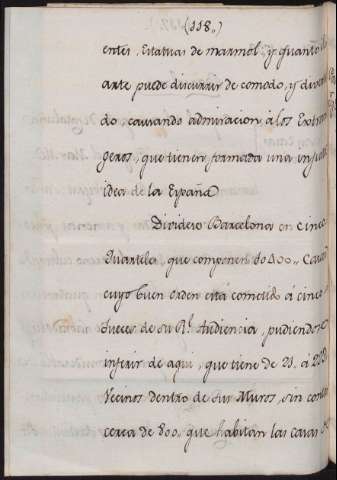 (118.)
entes, Estatuas de marmol, y quanto el
arte puede discurrir de comodo, y diver
do causando admiracion à los Extran
geros, que tienen formada una injusta
idea de la España
Dividese Barcelona en cinco
Quarteles que componen 60400 Casas
cuyo buen orden està cometido à cinco
Jueces de su Rl. Audiencia, pudiendose
inferir de aqui, que tiene de 20. à
Vecinos dentro de sus Muros, sin contar
cerca de 800. que habitan las casas